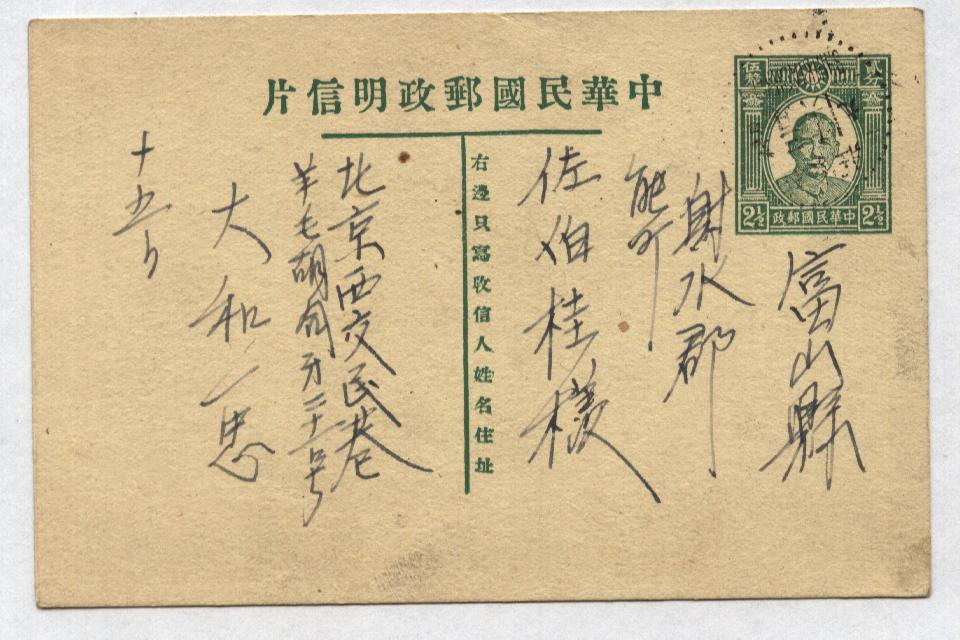 中華民國郵政明信片
貳分
伍釐
2½ 中華民國郵政 2½
右邊只寫收信人姓名住址
富山縣
射水郡
佐伯桂様
北京西交民巷
羊毛胡同

大和一忠
十五日